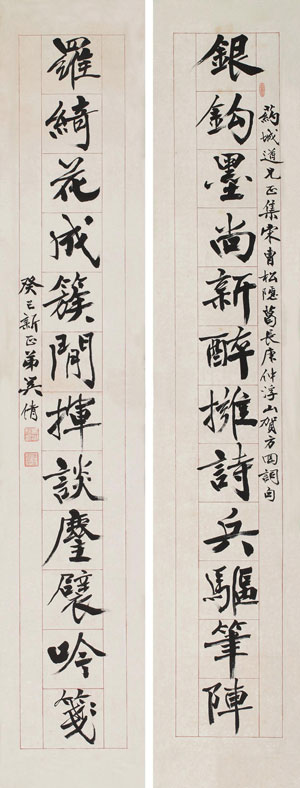 銀鈎墨尚新醉擁詩兵驅筆陣
葯城道兄正集宋曹松隱葛長庚仲浮山賀方回詞句
羅綺花成簇閒揮談麈襞吟箋
癸巳新正弟吳倩